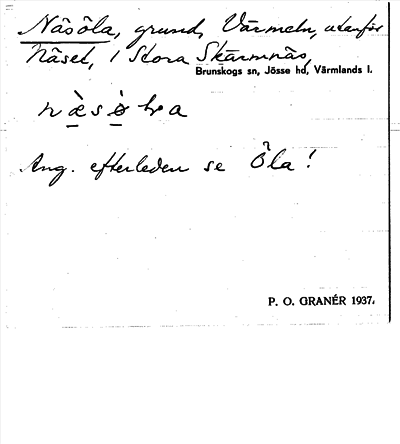 Näsöla, grund, Värmeln, utanför
Näset, i Stora Skärmnäs,
Brunskogs sn, Jösse hd, Värmlands l.
Ang. efterleden se Öla!
P. O. GRANÉR 1937.